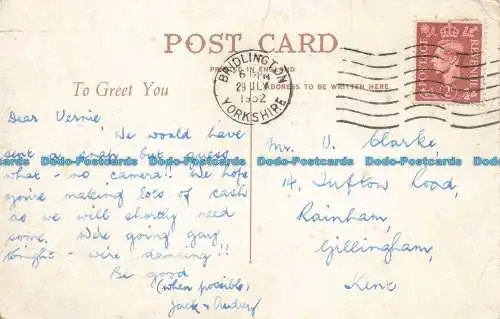 POST CARD
PRINTED IN ENGLAND
ADDRESS TO BE WRITTEN HERE
To Greet You
BRIDLINGTON
6 PM
29 JLY
1952
YORKSHIRE
POSTAGE
REVENUE
Dear Vernie,
We would have
sent a snap but guess
what - no camera!! We hope
you're making lots of cash
as we will shortly need
some. We're going gay
tonight - we're dancing!!
Be good
(when possible)
Jack & Audrey
Mr V. Clarke,
14, Tufton Road,
Rainham,
Gillingham,
Kent
Dodo-Postcards Dodo-Postcards Dodo-Postcards
Dodo-Postcards Dodo-Postcards Dodo-Postcards